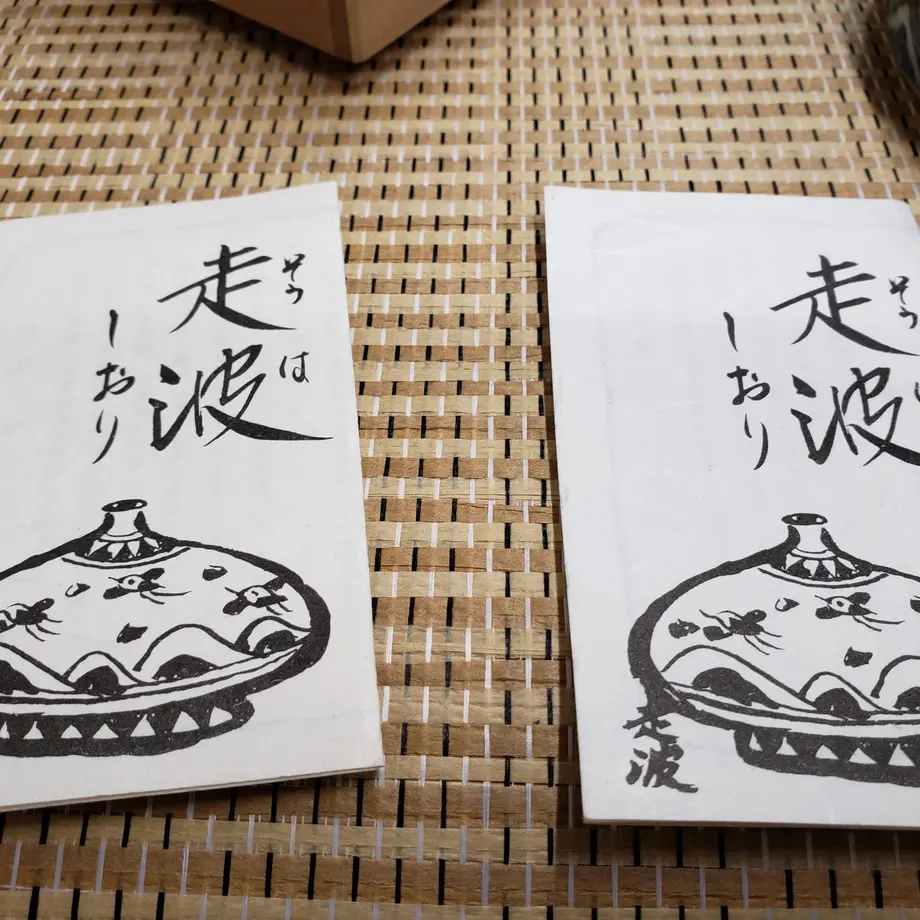 走波
そう は
しおり
走波
そう
しおり
走波